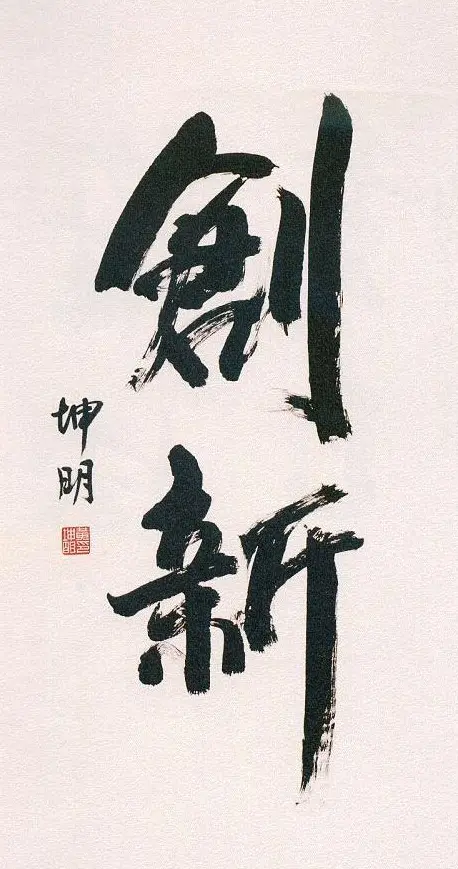 創新
坤明